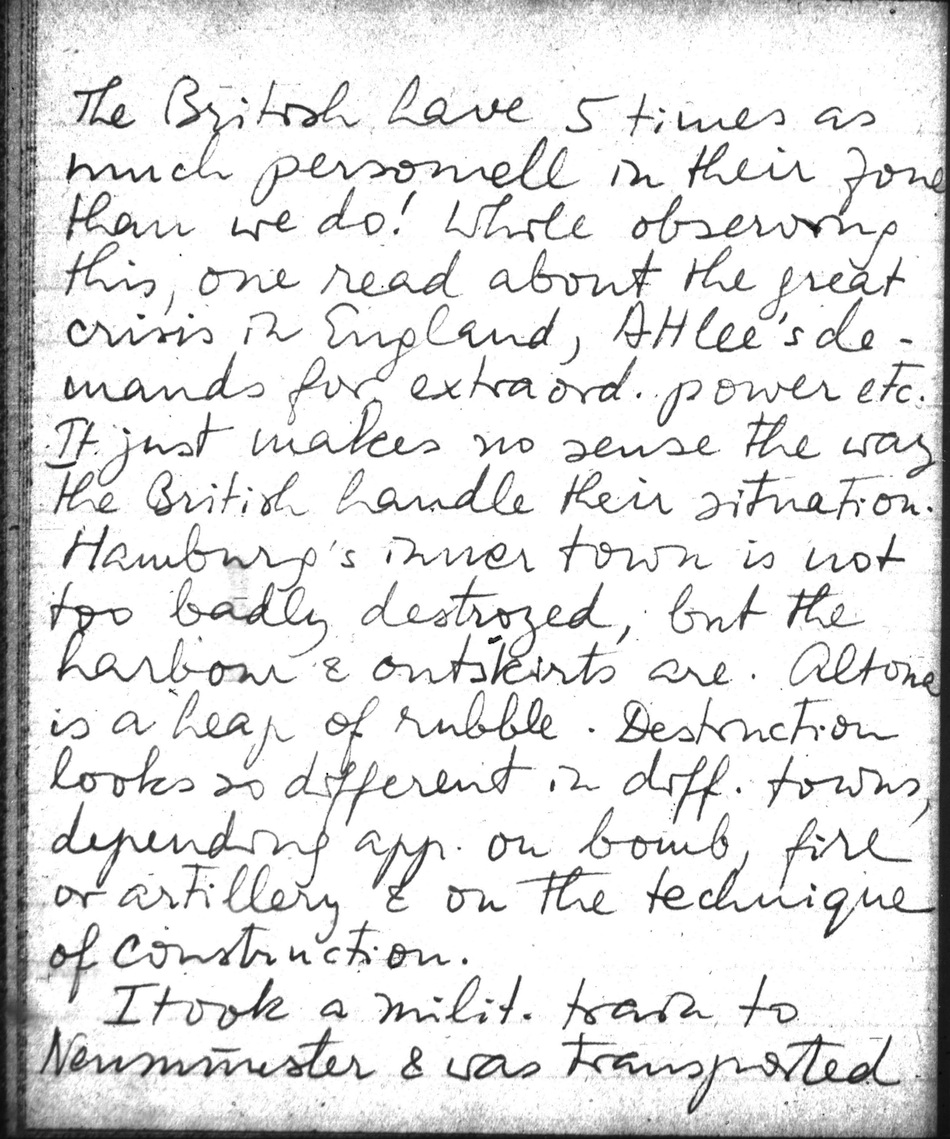 The British have 5 times as
much personell in their zone
than we do! While observing
this, one read about the great
crisis in England, Attlee's de-
mands for extraord. power etc.
It just makes no sense the way
the British handle their situation.
Hamburg's inner town is not
too badly destroyed, but the
harbour & outskirts are. Altona
is a heap of rubble. Destruction
looks so different in diff. towns,
depending app. on bomb, fire
or artillery & on the technique
of construction.
I took a milit. train to
Neumünster & was transported